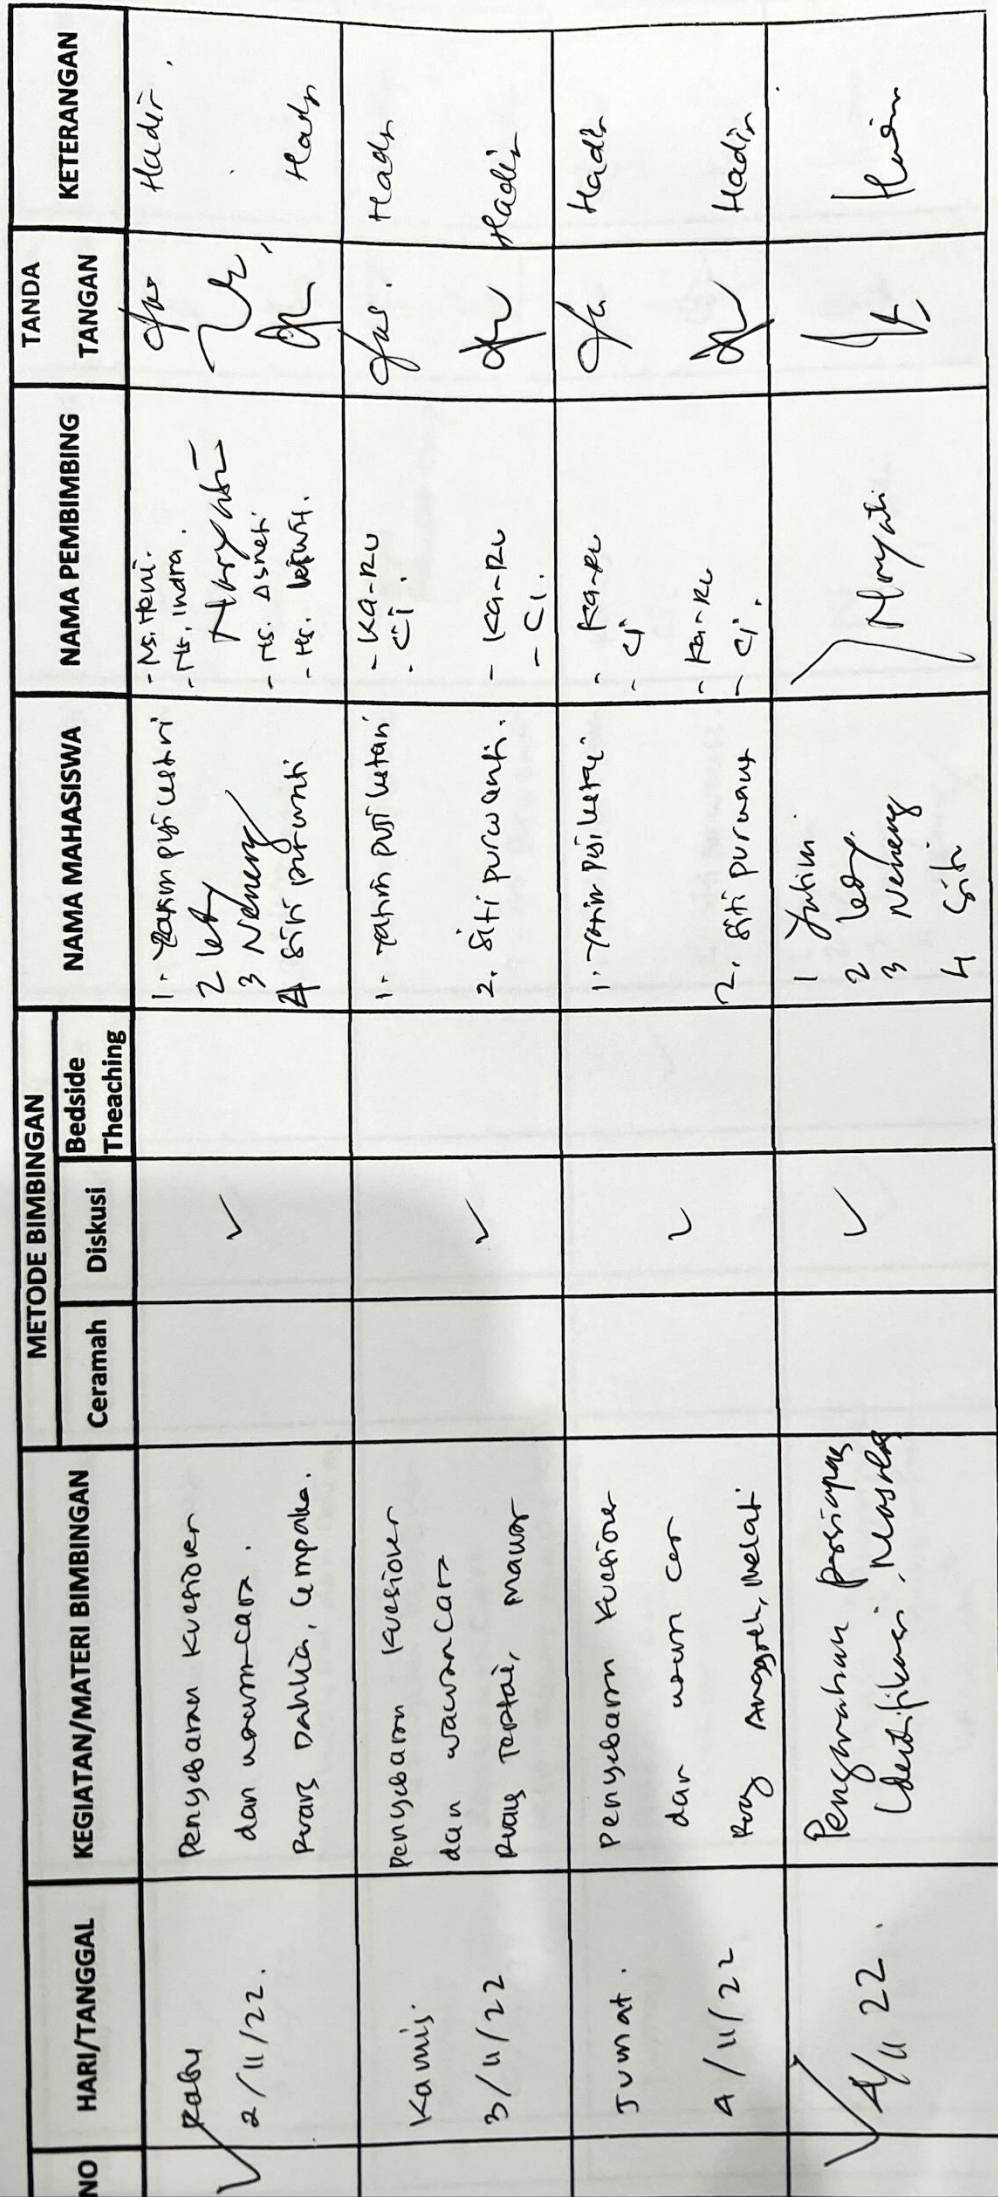 NO
HARI/TANGGAL
KEGIATAN/MATERI BIMBINGAN
METODE BIMBINGAN
Ceramah
Diskusi
Bedside
Theaching
NAMA MAHASISWA
NAMA PEMBIMBING
TANDA
TANGAN
KETERANGAN
Rabu
2/11/22.
Penyebaran Kuesioner
dan wawancara.
Ruang Dahlia, Cempaka.
1. Yatim puji lestari
2 Lety
3 Neneng
4 Siti purwanti
- Ns. Heni.
- Ns. Indra.
Maryati
- Ns. Asneti
- Ns.
Hadir.
Hadir
Kamis.
3/11/22
Penyebaran Kuesioner
dan wawancara
Ruang Teratai, Mawar
1. Yatim puji lestari
2. Siti purwanti.
- Ka-Ru
- CI.
- Ka-Ru
- CI.
Hadir
Hadir
Jumat.
4/11/22
Penyebaran Kuesioner
dan wawancara
Ruang Anggrek, Melati
1. Yatim puji lestari
2. Siti purwanti
- Ka-Ru
- CI
- Ka-Ru
- CI.
Hadir
Hadir
4/11 22.
Pengarahan persiapan
Identifikasi Masalah
1 Yatim
2 Lety
3 Neneng
4 Siti
Maryati
Hadir